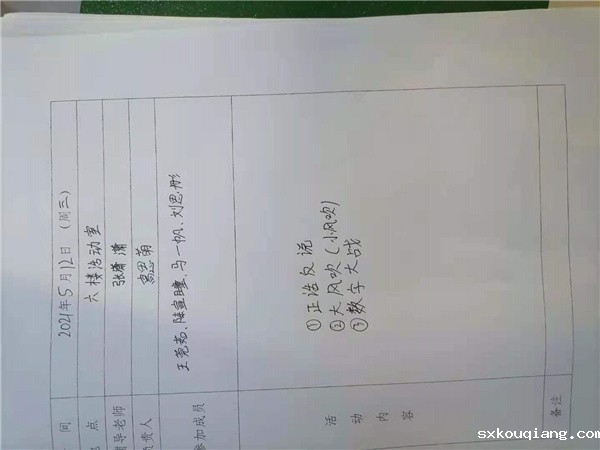 间 2021年5月12日（周三）
点 六楼活动室
辅导老师 张 潇
负责人 高思萌
参加成员 王莞茹、陈宣瞳、马一帆、刘思彤
活动内容
①正话反说
②大风吹（小风吹）
③数字大战
备注
sxkouqiang.com